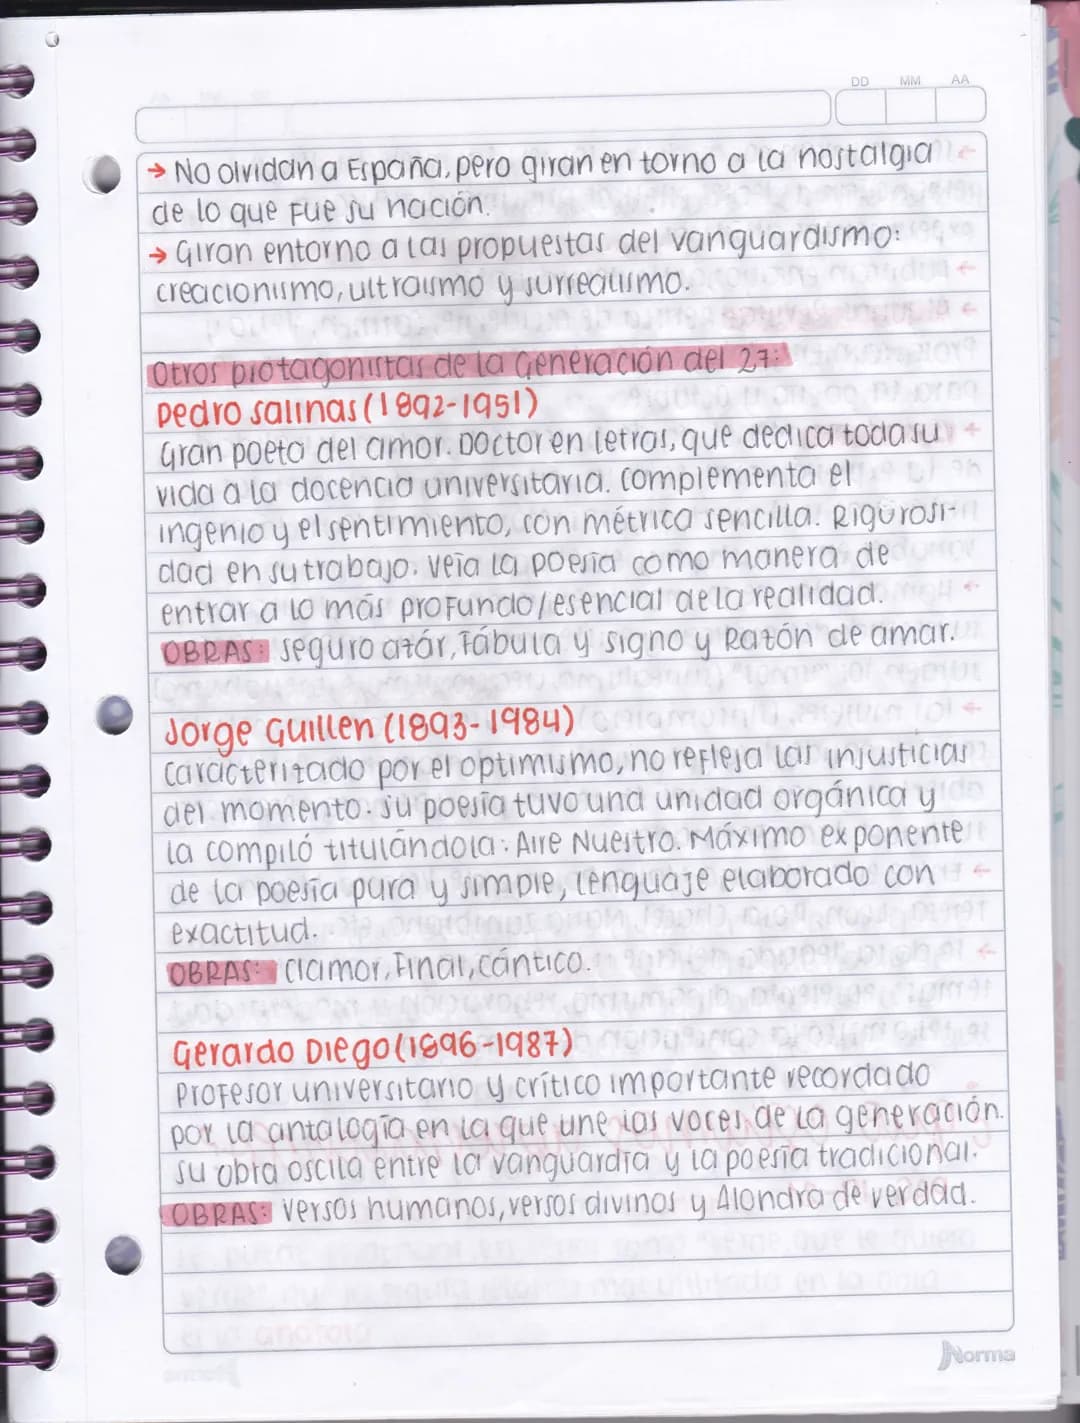 DD MM AA
→ No olvidan a España, pero giran en torno a la nostalgia
de lo que fue su nación.
→ Giran entorno a las propuestas del vanguardismo:
creacionismo, ultraismo y surrealismo.
Otros protagonistas de la Generación del 27:
Pedro Salinas (1892-1951)
Gran poeta del amor. Doctor en letras, que dedica toda su
vida a la docencia universitaria. Complementa el
ingenio y el sentimiento, con métrica sencilla. Rigurosi-
dad en su trabajo. Veía la poesía como manera de
entrar a lo más profundo/esencial de la realidad.
OBRAS: Seguro atár, Fábula y signo y Razón de amar.
Jorge Guillen (1893-1984)
Caracterizado por el optimismo, no refleja las injusticias
del momento. Su poesía tuvo una unidad orgánica y
la compiló titulándola: Aire Nuestro. Máximo exponente
de la poesía pura y simple, lenguaje elaborado con
exactitud.
OBRAS: Clamor, Final, Cántico.
Gerardo Diego (1896-1987)
Profesor universitario y crítico importante recordado
por la antalogía en la que une las voces de la generación.
Su obra oscila entre la vanguardia y la poesía tradicional.
OBRAS: Versos humanos, versos divinos y Alondra de verdad.
Norma